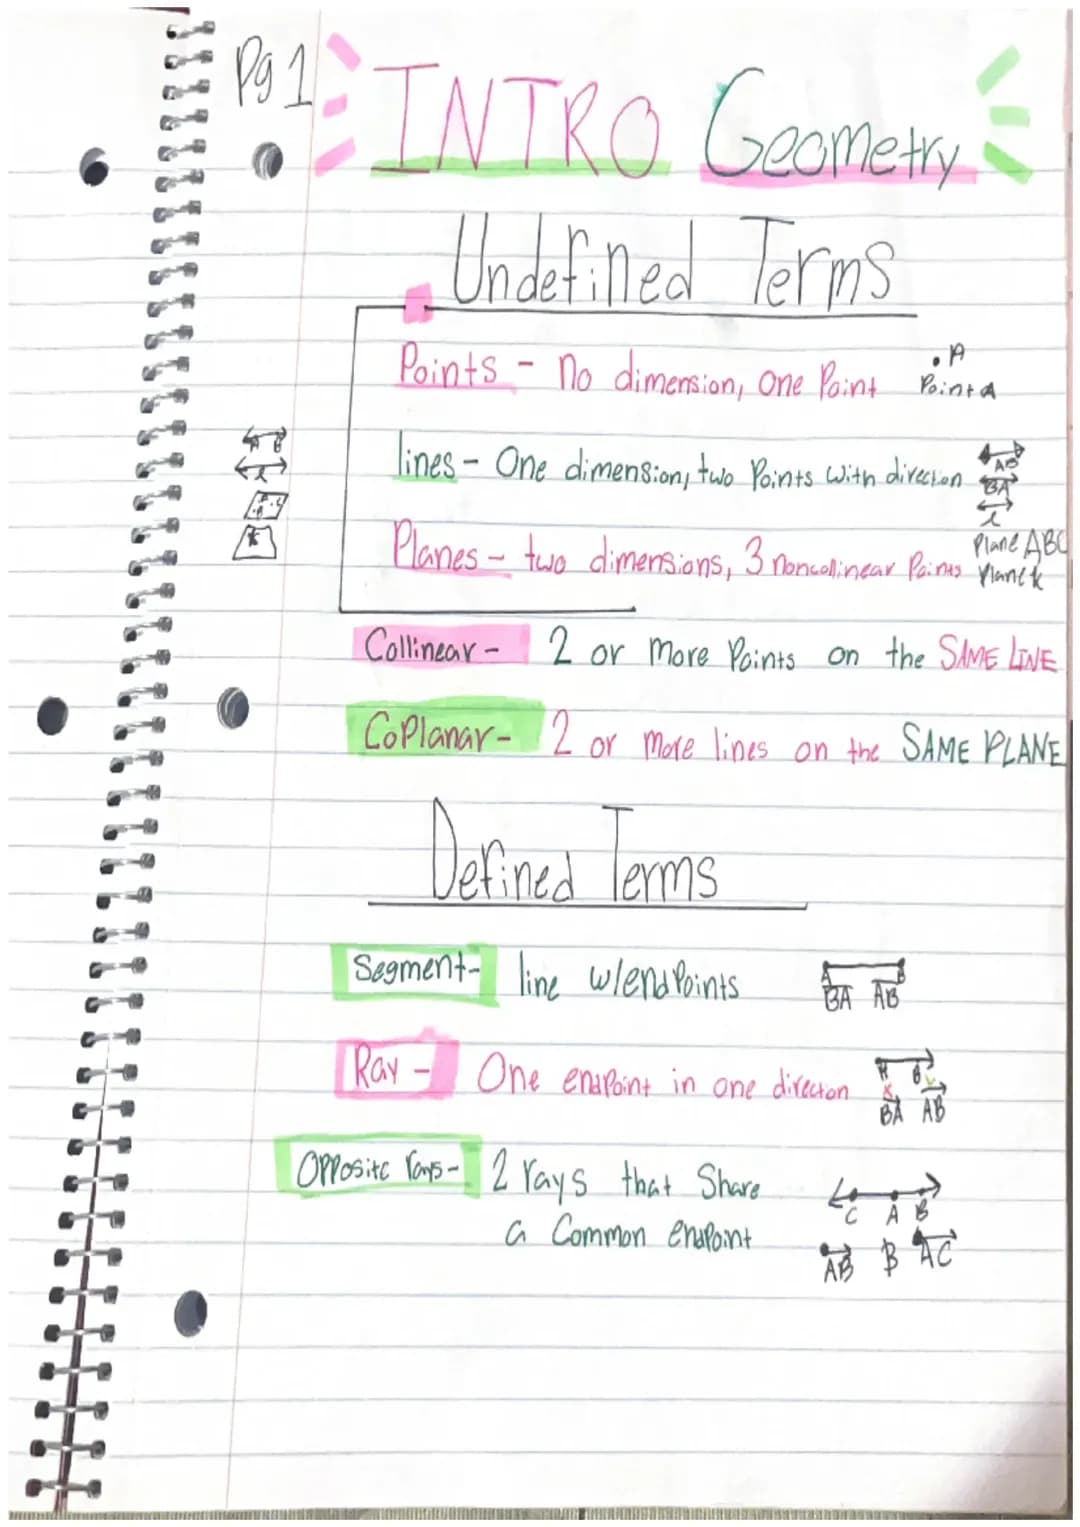 Pg 1
INTRO Geometry
Undefined Terms
Points - no dimension, one Point
• A
Point A
lines - One dimension, two Points with direction
AB
BA
l
A B
l
Planes - two dimensions, 3 noncollinear Points
Plane ABC
Plane k
A B C
K
Collinear - 2 or more Points on the SAME LINE
CoPlanar - 2 or more lines on the SAME PLANE
Defined Terms
Segment - line w/endPoints
A B
BA AB
Ray - One endPoint in one directon
A B
BA AB
Opposite rays - 2 rays that Share
a Common endpoint
C A B
AB B AC